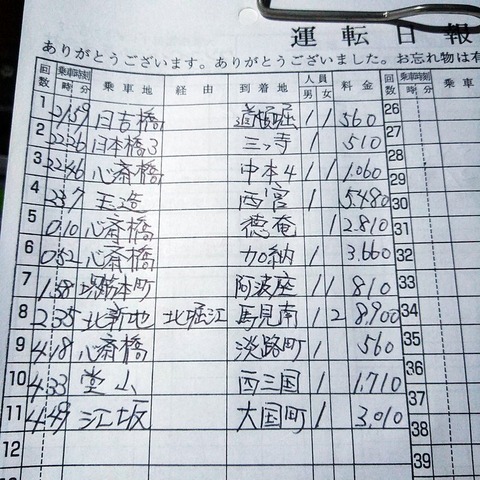 運転日報
ありがとうございます。ありがとうございました。お忘れ物は有
回数 乗車時刻 時 分 乗車地 経由 到着地 人員 男 女 料金 回数 乗車時刻 時 分 乗車
1 21 59 日吉橋 道頓堀 1 1 560 26
2 22 26 日本橋3 三ッ寺 1 510 27
3 22 46 心斎橋 中本4 1 1 1,060 28
4 23 7 玉造 西宮 1 5,480 29
5 0 10 心斎橋 徳庵 1 2,810 30
6 0 52 心斎橋 加納 1 3,660 31
7 1 38 堺筋本町 阿波座 1 1 810 32
8 2 35 北新地 北堀江 馬見南 1 2 8,900 33
9 4 18 心斎橋 淡路町 1 560 34
10 4 33 堂山 西三国 1 1,710 35
11 4 49 江坂 大国町 1 3,010 36
12 37
38
39